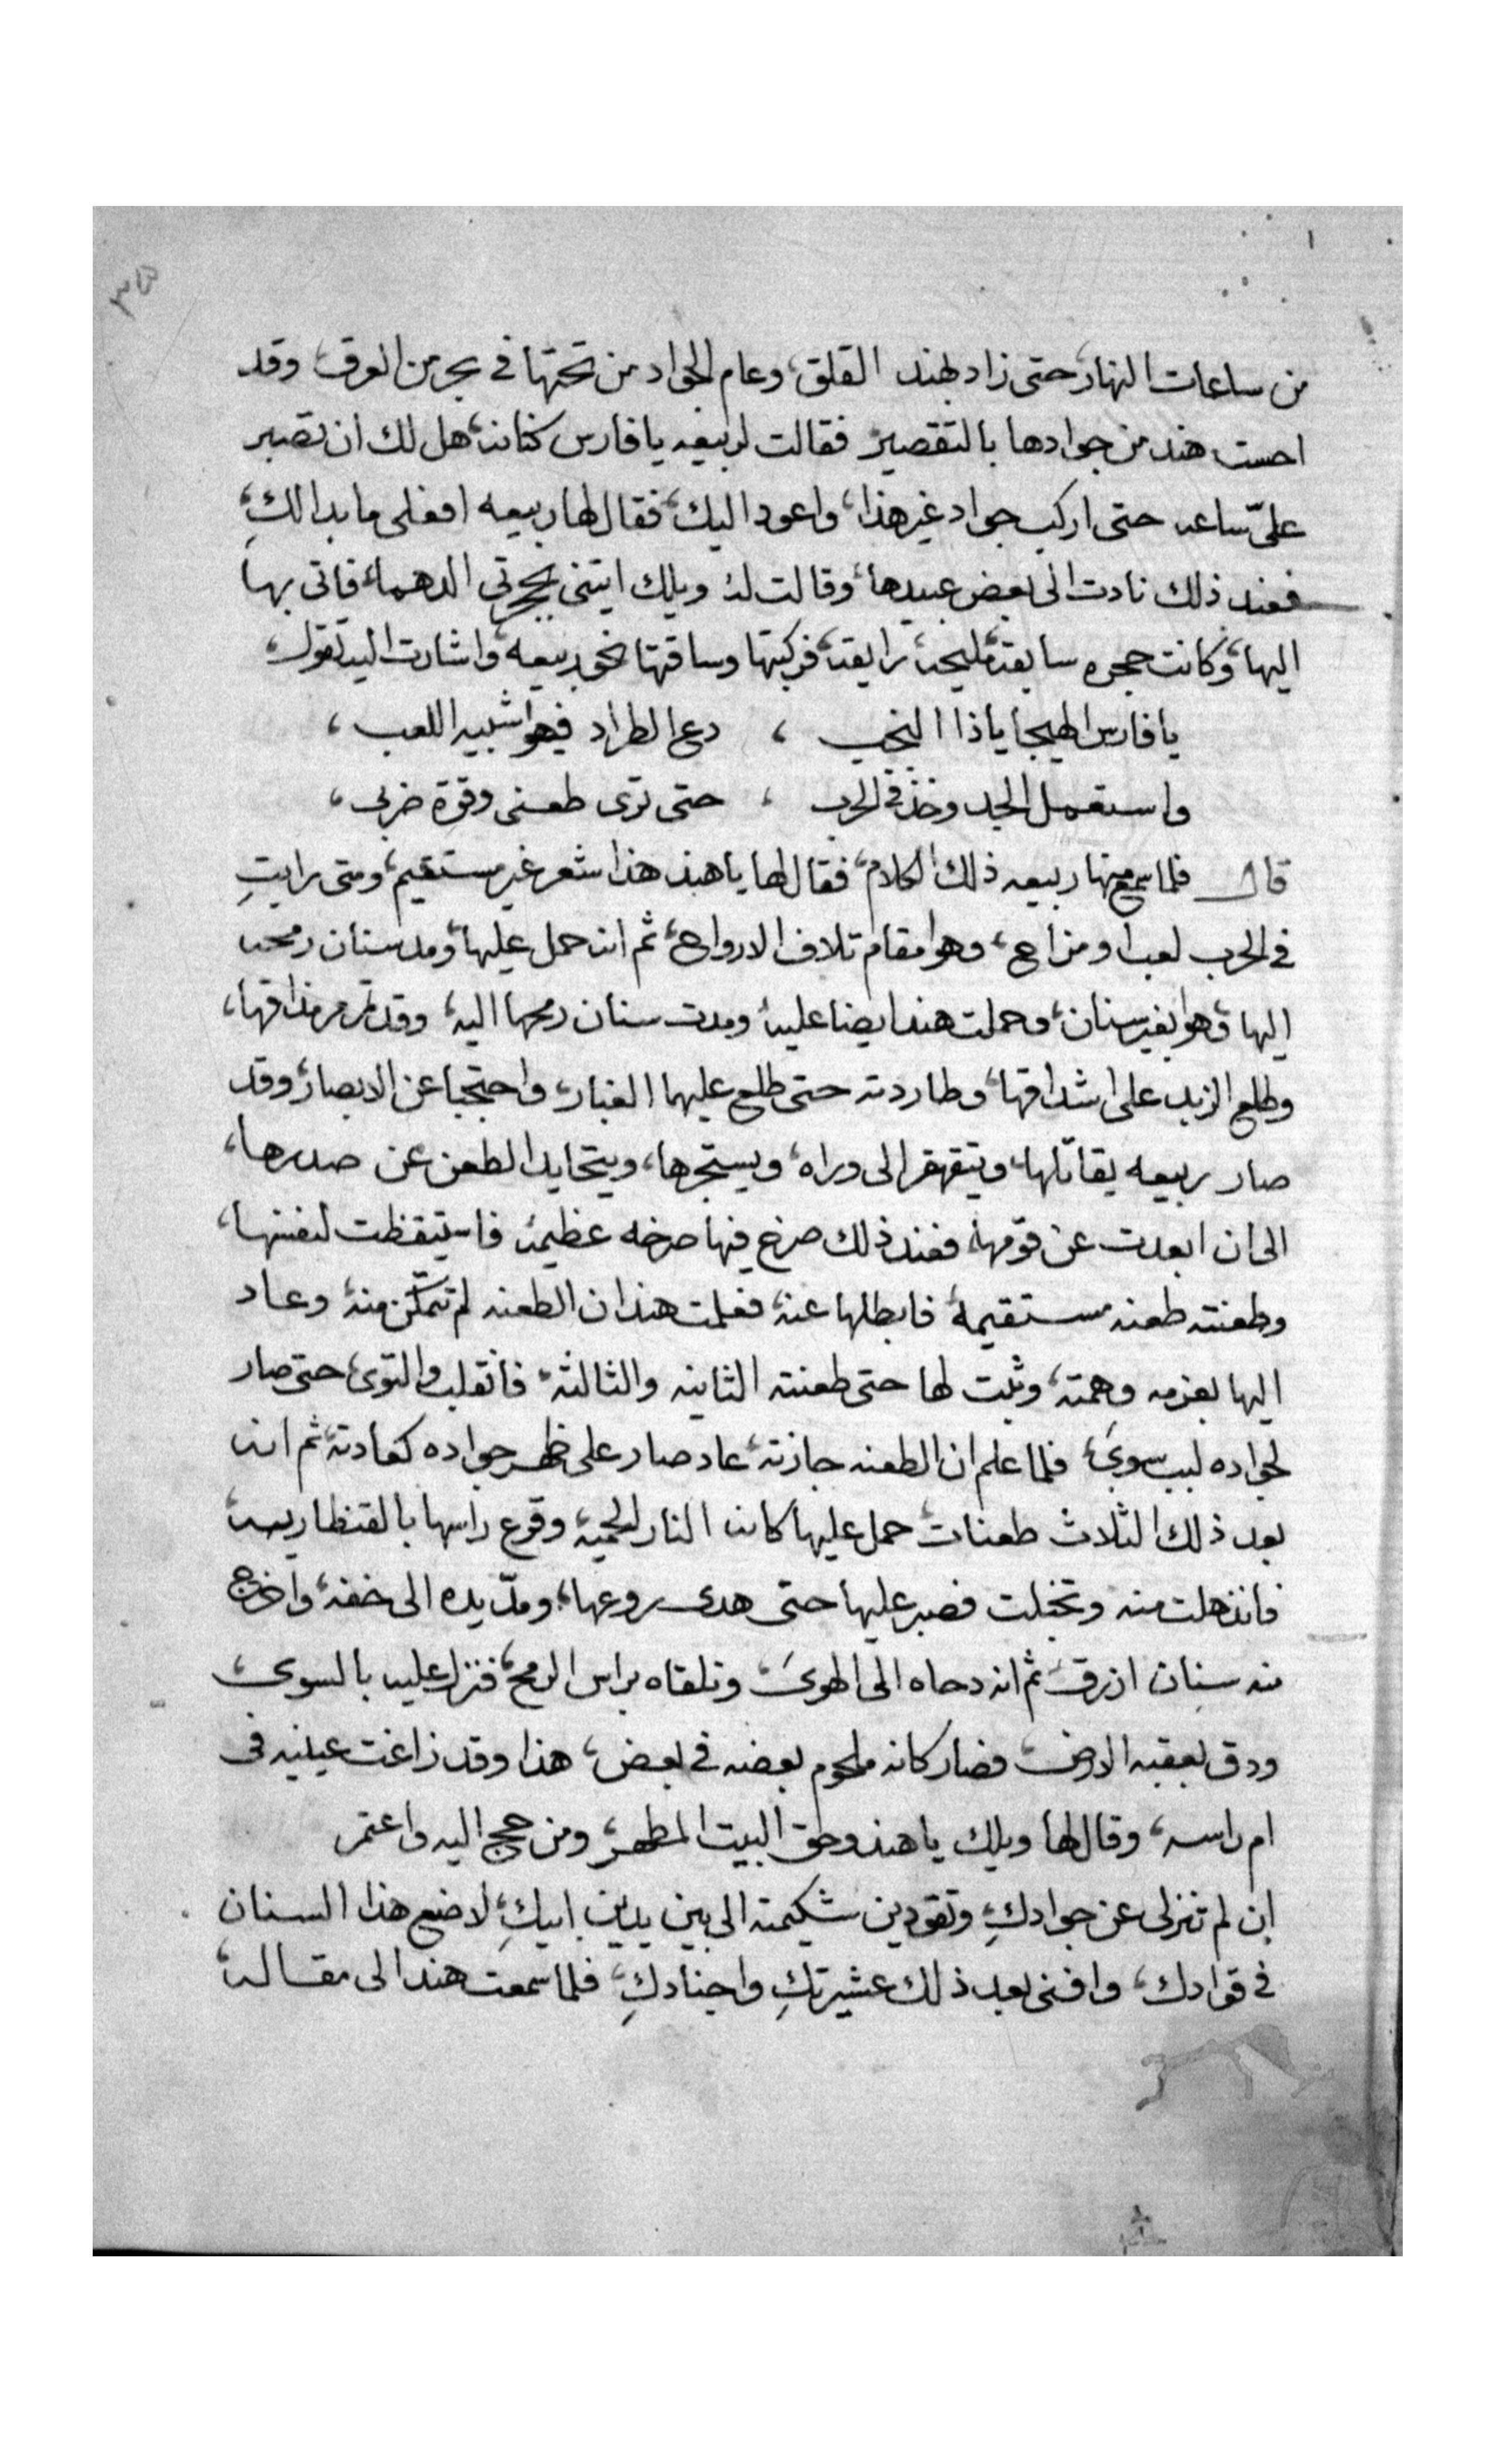 من ساعات النهار، حتى زاد بهند القلق، وعام الجواد من تحتها في بحر من العرق، وقد
احست هند من جوادها بالتقصير فقالت لربيعه يا فارس كنانه، هل لك ان تصبر
عليّ ساعه حتى اركب جواد غير هذا، واعود اليك، فقال لها ربيعه افعلى ما بدالكِ،
فعند ذلك نادت الى بعض عبيدها، وقالت له ويلك ايتنى بحجرتى الدهما، فاتى بها
اليها، وكانت حجره سابقه، مليحه، رايقه، فركبتها وساقتها نحو ربيعه، واشارت اليه تقول،
يا فارس الهيجا ياذا النجب ، دع الطراد فهوا شبيه اللعب ،
واستعمل الجد وخذ في الحرب ، حتى ترى طعنى وقوة ضربى ،
قال فلما سمع منها ربيعه ذلك الكلام، فقال لها يا هند هذا شعر غير مستقيم، ومتى رايتِ
في الحرب لعب او مزاح، وهوا مقام تلاف الارواح، ثم انه حمل عليها، ومد سنان رمحه
اليها، وهوا بغير سنان، وحملت هند ايضا عليه، ومدت سنان رمحها اليه، وقد تمرمر مذاقها،
وطلع الزبد على اشداقها، وطاردته حتى طلع عليهما الغبار، واحتجبا عن الابصار، وقد
صار ربيعه يقاتلها، ويتقهقر الى وراه، ويستجرها، ويتحايد الطعن عن صدرها،
الى ان ابعدت عن قومها، فعند ذلك صرخ فيها صرخه عظيمه، فاستيقظت لنفسها،
وطعنته طعنه مستقيمه، فابطلها عنه، فعلمت هند ان الطعنه لم تتمكّن منه، وعاد
اليها بعزمه وهمته، وثبت لها حتى طعنته الثانيه والثالثه، فانقلب والتوى، حتى صار
لجواده لبب سوىَ، فلما علم ان الطعنه جازته، عاد صار على ظهر جواده كعادته، ثم انه
بعد ذلك الثلاث طعنات، حمل عليها كانه النار المحميه، وقرع راسها بالقنطاريه،
فانذهلت منه وتخبلت فصبر عليها حتى هدى روعها، ومدّ يده الى خفه، واخرج
منه سنان ازرق، ثم انه دحاه الى الهوىَ، وتلقاه براس الرمح، فنزل عليه بالسوى،
ودق بعقبه الارض، فصار كانه ملحوم بعضه في بعض، هذا وقد زاغت عينيه فى
ام راسه، وقال لها ويلك يا هند وحق البيت المطهر، ومن حج اليه واعتمر
ان لم تنزلى عن جوادكِ، وتقودين شكيمته الى بين يدين ابيكِ، لاضع هذا السنان
في فوادك، وافنى بعد ذلك عشيرتكِ واجنادكِ، فلما سمعت هند الى مقاله،